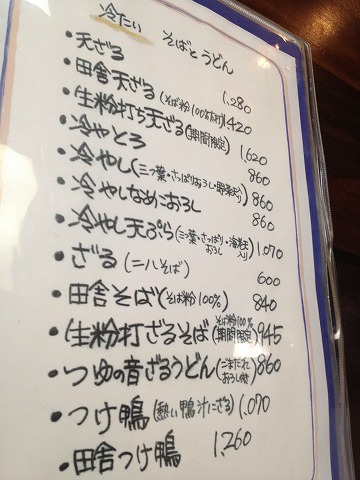 冷たい そばとうどん
・天ざる 1,280
・田舎天ざる(そば粉100%太打)1,420
・生粉打ち天ざる(期間限定)1,620
・冷やとろ 860
・冷やし(三つ葉・さっぱりおろし・野菜天入り)860
・冷やしなめこおろし 860
・冷やし天ぷら(三つ葉・さっぱりおろし・海老天入り)1,070
・ざる(二八そば) 600
・田舎そば(そば粉100%) 840
・生粉打ざるそば(そば粉100%期間限定)945
・つゆの音ざるうどん(ごまだれおろし付)860
・つけ鴨(熱い鴨汁にざる)1,070
・田舎つけ鴨 1,260